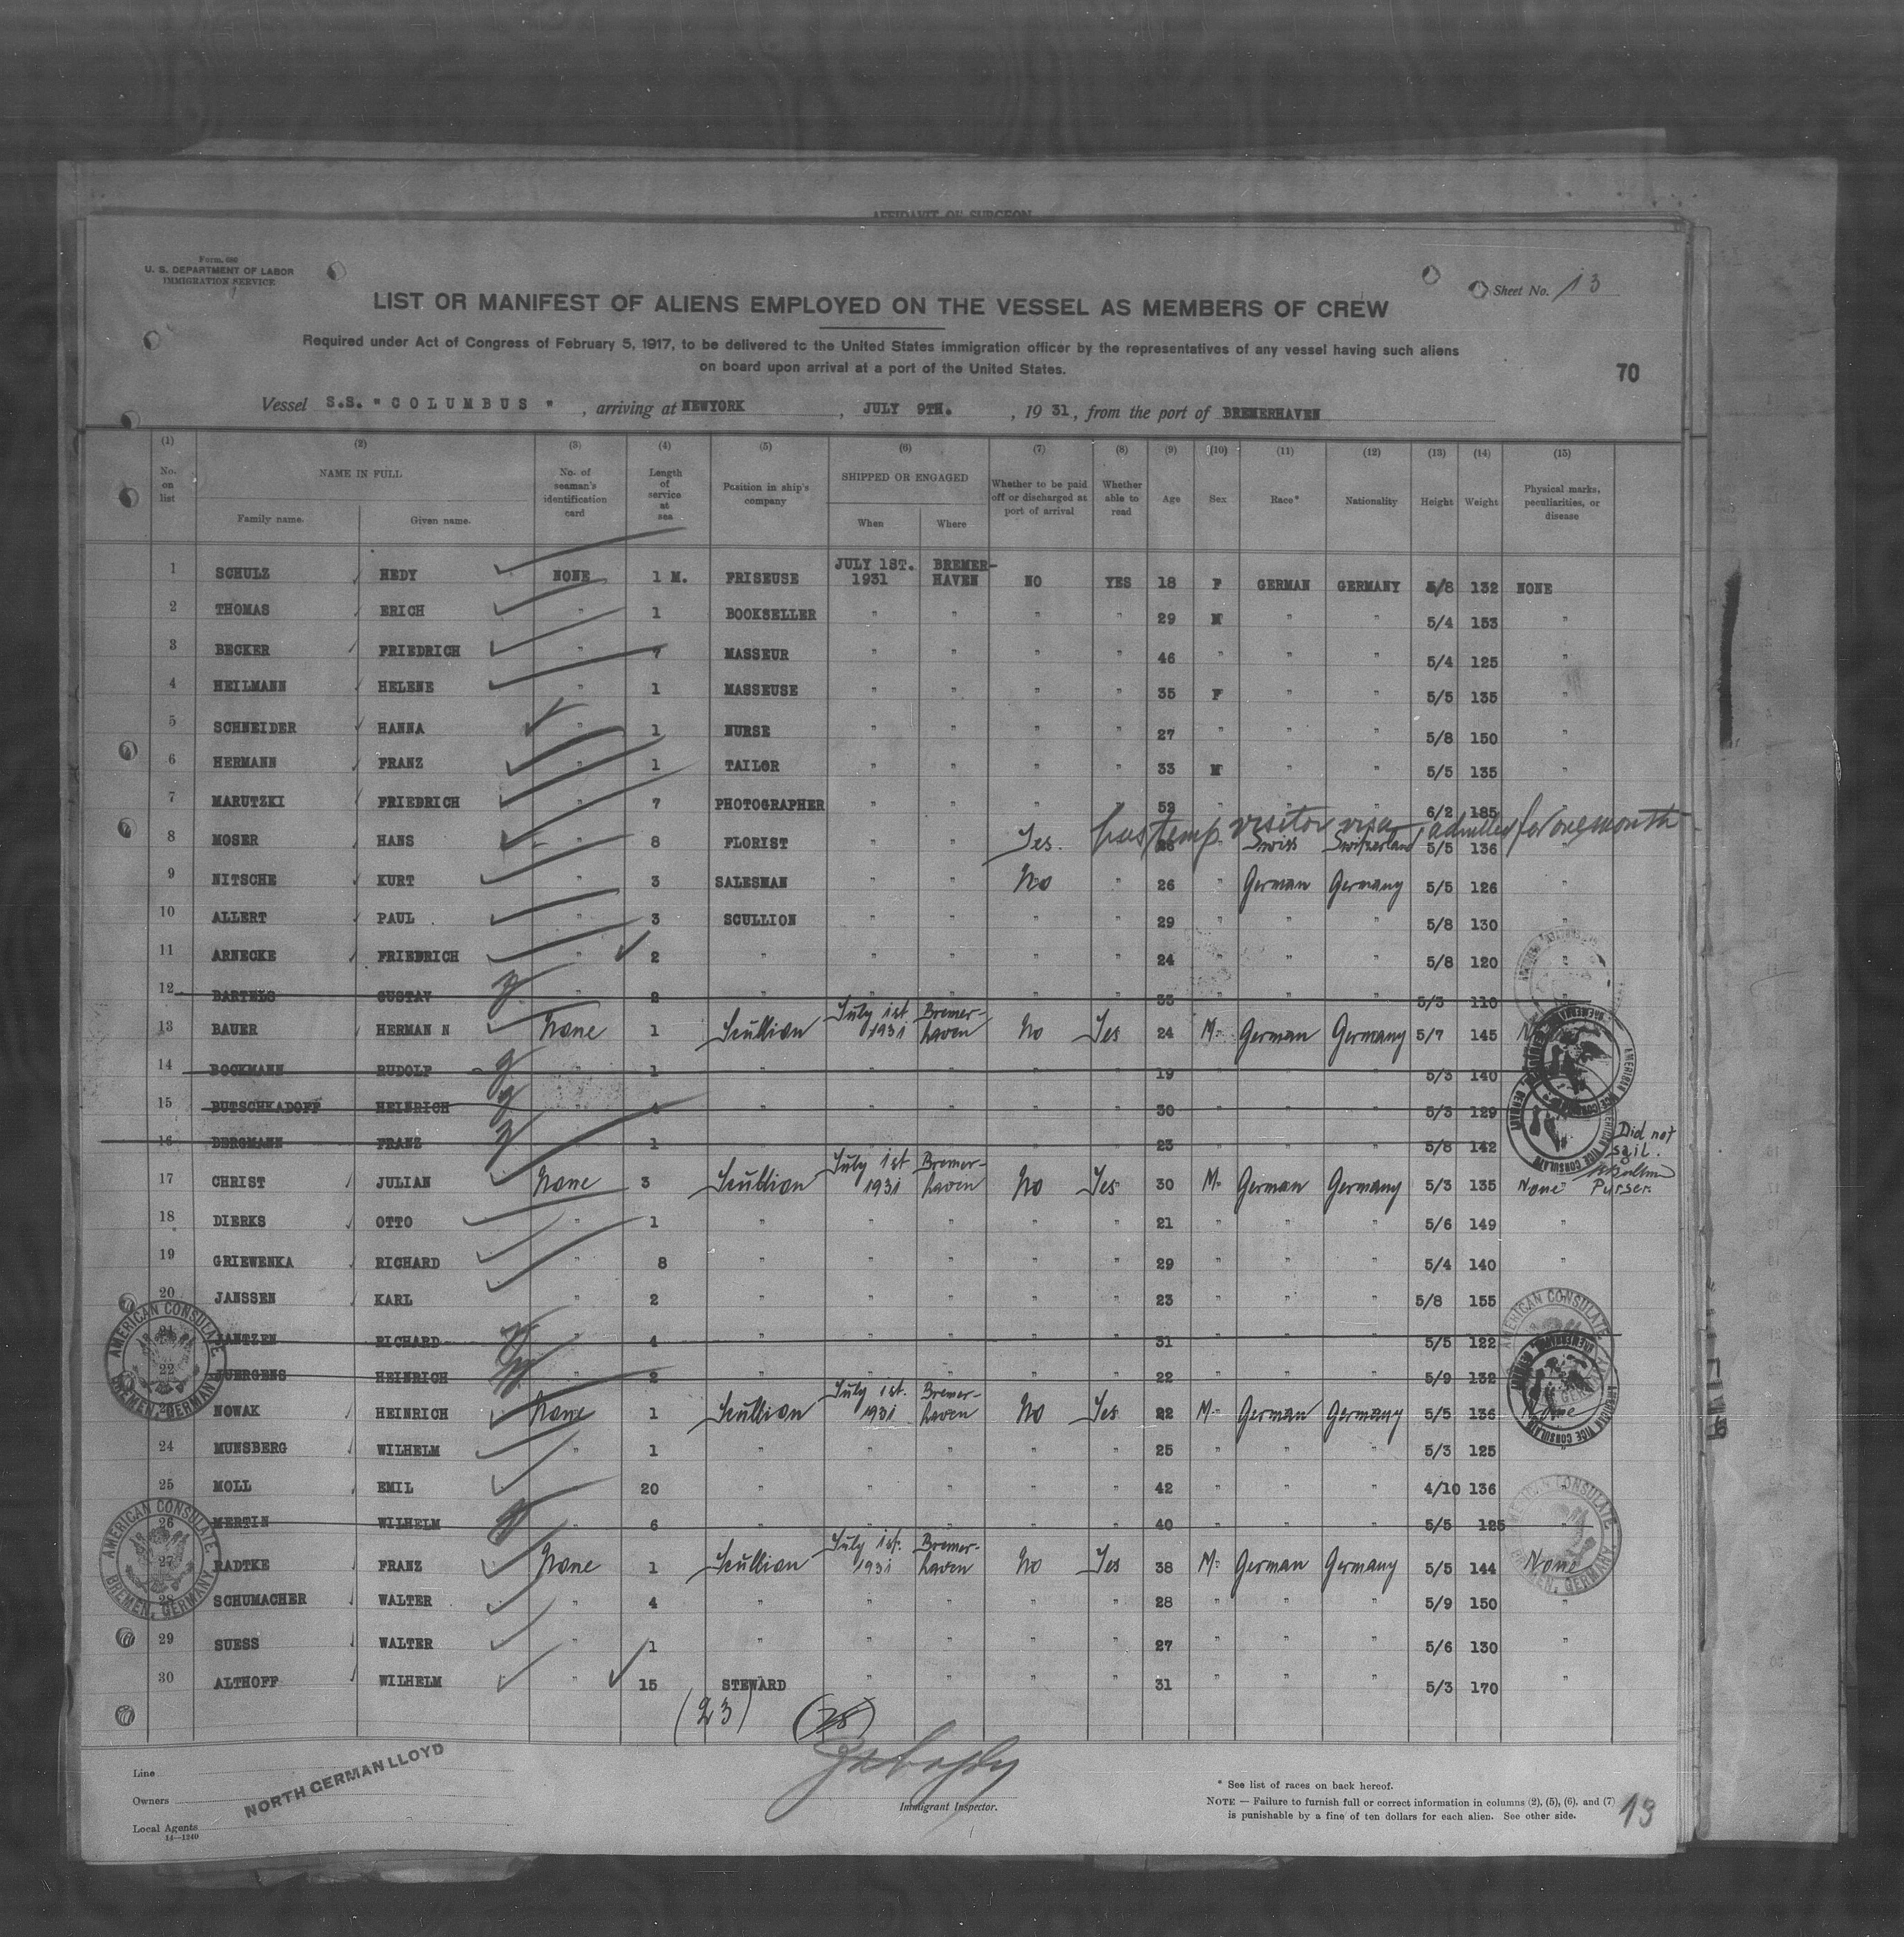 AFFIDAVIT OF SURGEON
Form 680
U. S. DEPARTMENT OF LABOR
IMMIGRATION SERVICE
Sheet No. 13
LIST OR MANIFEST OF ALIENS EMPLOYED ON THE VESSEL AS MEMBERS OF CREW
Required under Act of Congress of February 5, 1917, to be delivered to the United States immigration officer by the representatives of any vessel having such aliens
on board upon arrival at a port of the United States.
70
Vessel S.S. "COLUMBUS", arriving at NEWYORK, JULY 9TH., 1931, from the port of BREMERHAVEN
(1) (2) (3) (4) (5) (6) (7) (8) (9) (10) (11) (12) (13) (14) (15)
No. on list NAME IN FULL Family name. Given name. No. of seaman's identification card Length of service at sea Position in ship's company SHIPPED OR ENGAGED When Where Whether to be paid off or discharged at port of arrival Whether able to read Age Sex Race* Nationality Height Weight Physical marks, peculiarities, or disease
1 SCHULZ HEDY NONE 1 M. FRISEUSE JULY 1ST. 1931 BREMER-HAVEN NO YES 18 F GERMAN GERMANY 5/8 132 NONE
2 THOMAS ERICH " 1 BOOKSELLER " " " " 29 M " " 5/4 153 "
3 BECKER FRIEDRICH " 7 MASSEUR " " " " 46 " " " 5/4 125 "
4 HEILMANN HELENE " 1 MASSEUSE " " " " 35 F " " 5/5 135 "
5 SCHNEIDER HANNA " 1 NURSE " " " " 27 " " " 5/8 150 "
6 HERMANN FRANZ " 1 TAILOR " " " " 33 M " " 5/5 135 "
7 MARUTZKI FRIEDRICH " 7 PHOTOGRAPHER " " " " 52 " " " 6/2 185 "
has temp visitor visa, admitted for one month
8 MOSER HANS " 8 FLORIST " " Yes. " " Swiss Switzerland 5/5 136 "
9 NITSCHE KURT " 3 SALESMAN " " No " 26 " German Germany 5/5 126 "
10 ALLERT PAUL " 3 SCULLION " " " " 29 " " " 5/8 130 "
11 ARNECKE FRIEDRICH " 2 " " " " " 24 " " " 5/8 120 "
12 BARTELS GUSTAV " 2 " " " " " 35 " " " 5/3 110 "
13 BAUER HERMAN N None 1 Scullion July 1st 1931 Bremer-haven No Yes 24 M. German Germany 5/7 145
14 BOCKMANN RUDOLF " 1 " " " " " 19 " " " 5/3 140
15 BUTSCHKADOFF HEINRICH " 4 " " " " " 30 " " " 5/3 129
16 BERGMANN FRANZ " 1 " " " " " 23 " " " 5/8 142
Did not sail.
Purser.
17 CHRIST JULIAN None 3 Scullion July 1st 1931 Bremer-haven No Yes 30 M. German Germany 5/3 135 None
18 DIERKS OTTO " 1 " " " " " 21 " " " 5/6 149 "
19 GRIEWENKA RICHARD " 8 " " " " " 29 " " " 5/4 140 "
20 JANSSEN KARL " 2 " " " " " 23 " " " 5/8 155 "
21 JANTZEN RICHARD " 4 " " " " " 31 " " " 5/5 122
22 JUERGENS HEINRICH " 2 " " " " " 22 " " " 5/9 132
23 NOWAK HEINRICH None 1 Scullion July 1st. 1931 Bremer-haven No Yes 22 M. German Germany 5/5 136 None
24 MUNSBERG WILHELM " 1 " " " " " 25 " " " 5/3 125 "
25 MOLL EMIL " 20 " " " " " 42 " " " 4/10 136 "
26 MERTIN WILHELM " 6 " " " " " 40 " " " 5/5 125 "
27 RADTKE FRANZ None 1 Scullion July 1st. 1931 Bremer-haven No Yes 38 M. German Germany 5/5 144 None
28 SCHUMACHER WALTER " 4 " " " " " 28 " " " 5/9 150 "
29 SUESS WALTER " 1 " " " " " 27 " " " 5/6 130 "
30 ALTHOFF WILHELM " 15 STEWARD " " " " 31 " " " 5/3 170 "
AMERICAN CONSULATE BREMEN, GERMANY
AMERICAN CONSULATE BREMEN, GERMANY
AMERICAN VICE CONSULATE
(23) (28)
Immigrant Inspector.
Line
Owners
Local Agents
14—1240
NORTH GERMAN LLOYD
* See list of races on back hereof.
NOTE — Failure to furnish full or correct information in columns (2), (5), (6), and (7)
is punishable by a fine of ten dollars for each alien. See other side.
13